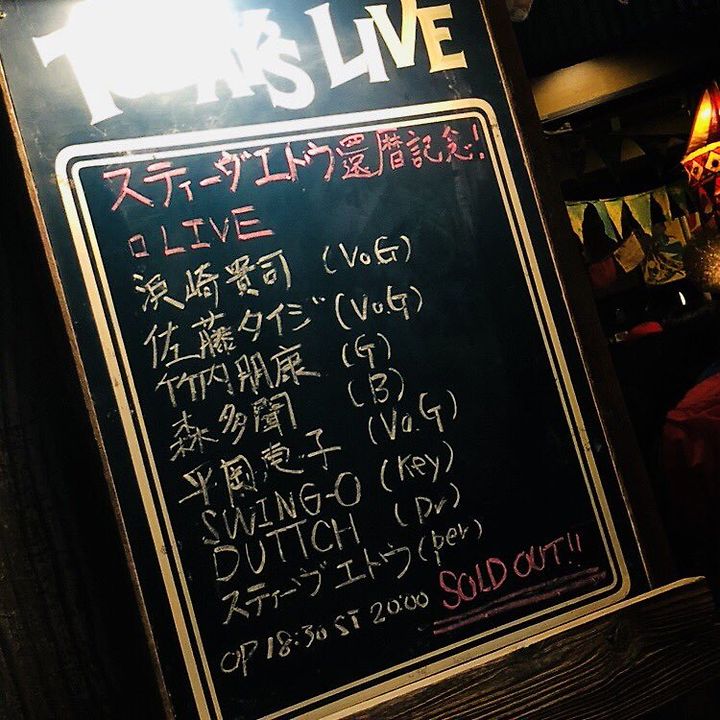 LIVE
スティーヴエトウ還暦記念!
□ LIVE
浜崎貴司 (Vo.G)
佐藤タイジ (Vo.G)
竹内朋康 (G)
森多聞 (B)
平岡恵子 (Vo.G)
SWING-O (Key)
DUTTCH (Dr)
スティーヴエトウ (per)
OP 18:30 ST 20:00 SOLD OUT!!